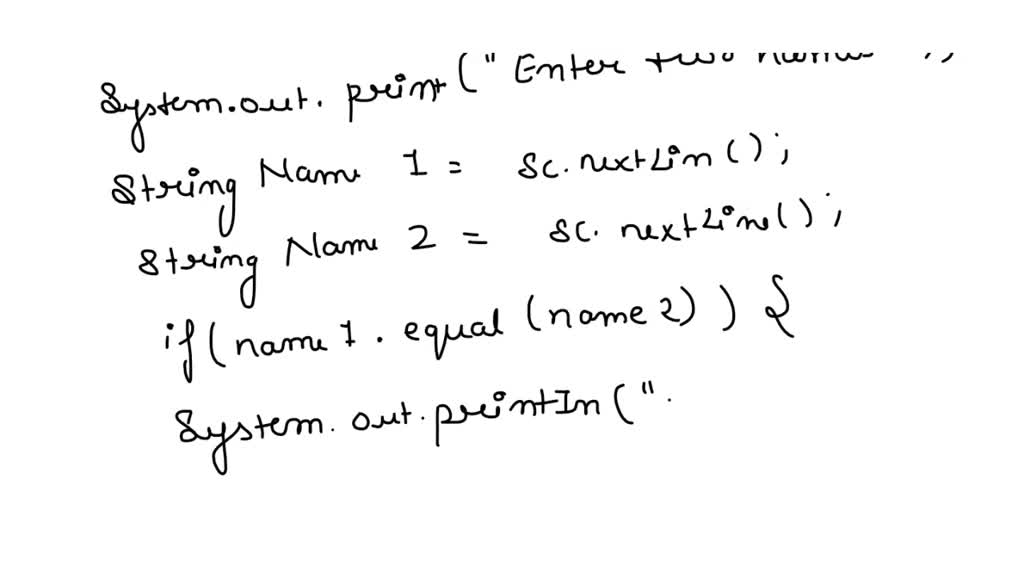 System.out. print (" Enter two names
String Name 1 = Sc. nextLin ( ) ;
String Name 2 = Sc. nextLine( ) ;
if ( name 1 . equal ( name 2 ) ) {
System. out. printIn ( " .